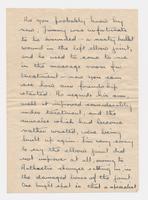 As you probably know by
now, Jimmy was unfortunate
to be wounded - a nasty bullet
wound in the left elbow joint,
and he used to come to me
in the massage room for
treatment - now you can
see how our friendship
started. He regards his arm
well & it improved considerably
under treatment, and the
muscles which had become
rather wasted, were being
built up again. I'm very sorry
to say the elbow joint did
not improve at all, owing to
Arthritic changes setting in in
the damaged bones of the joint.
One bright spot is that a specialist